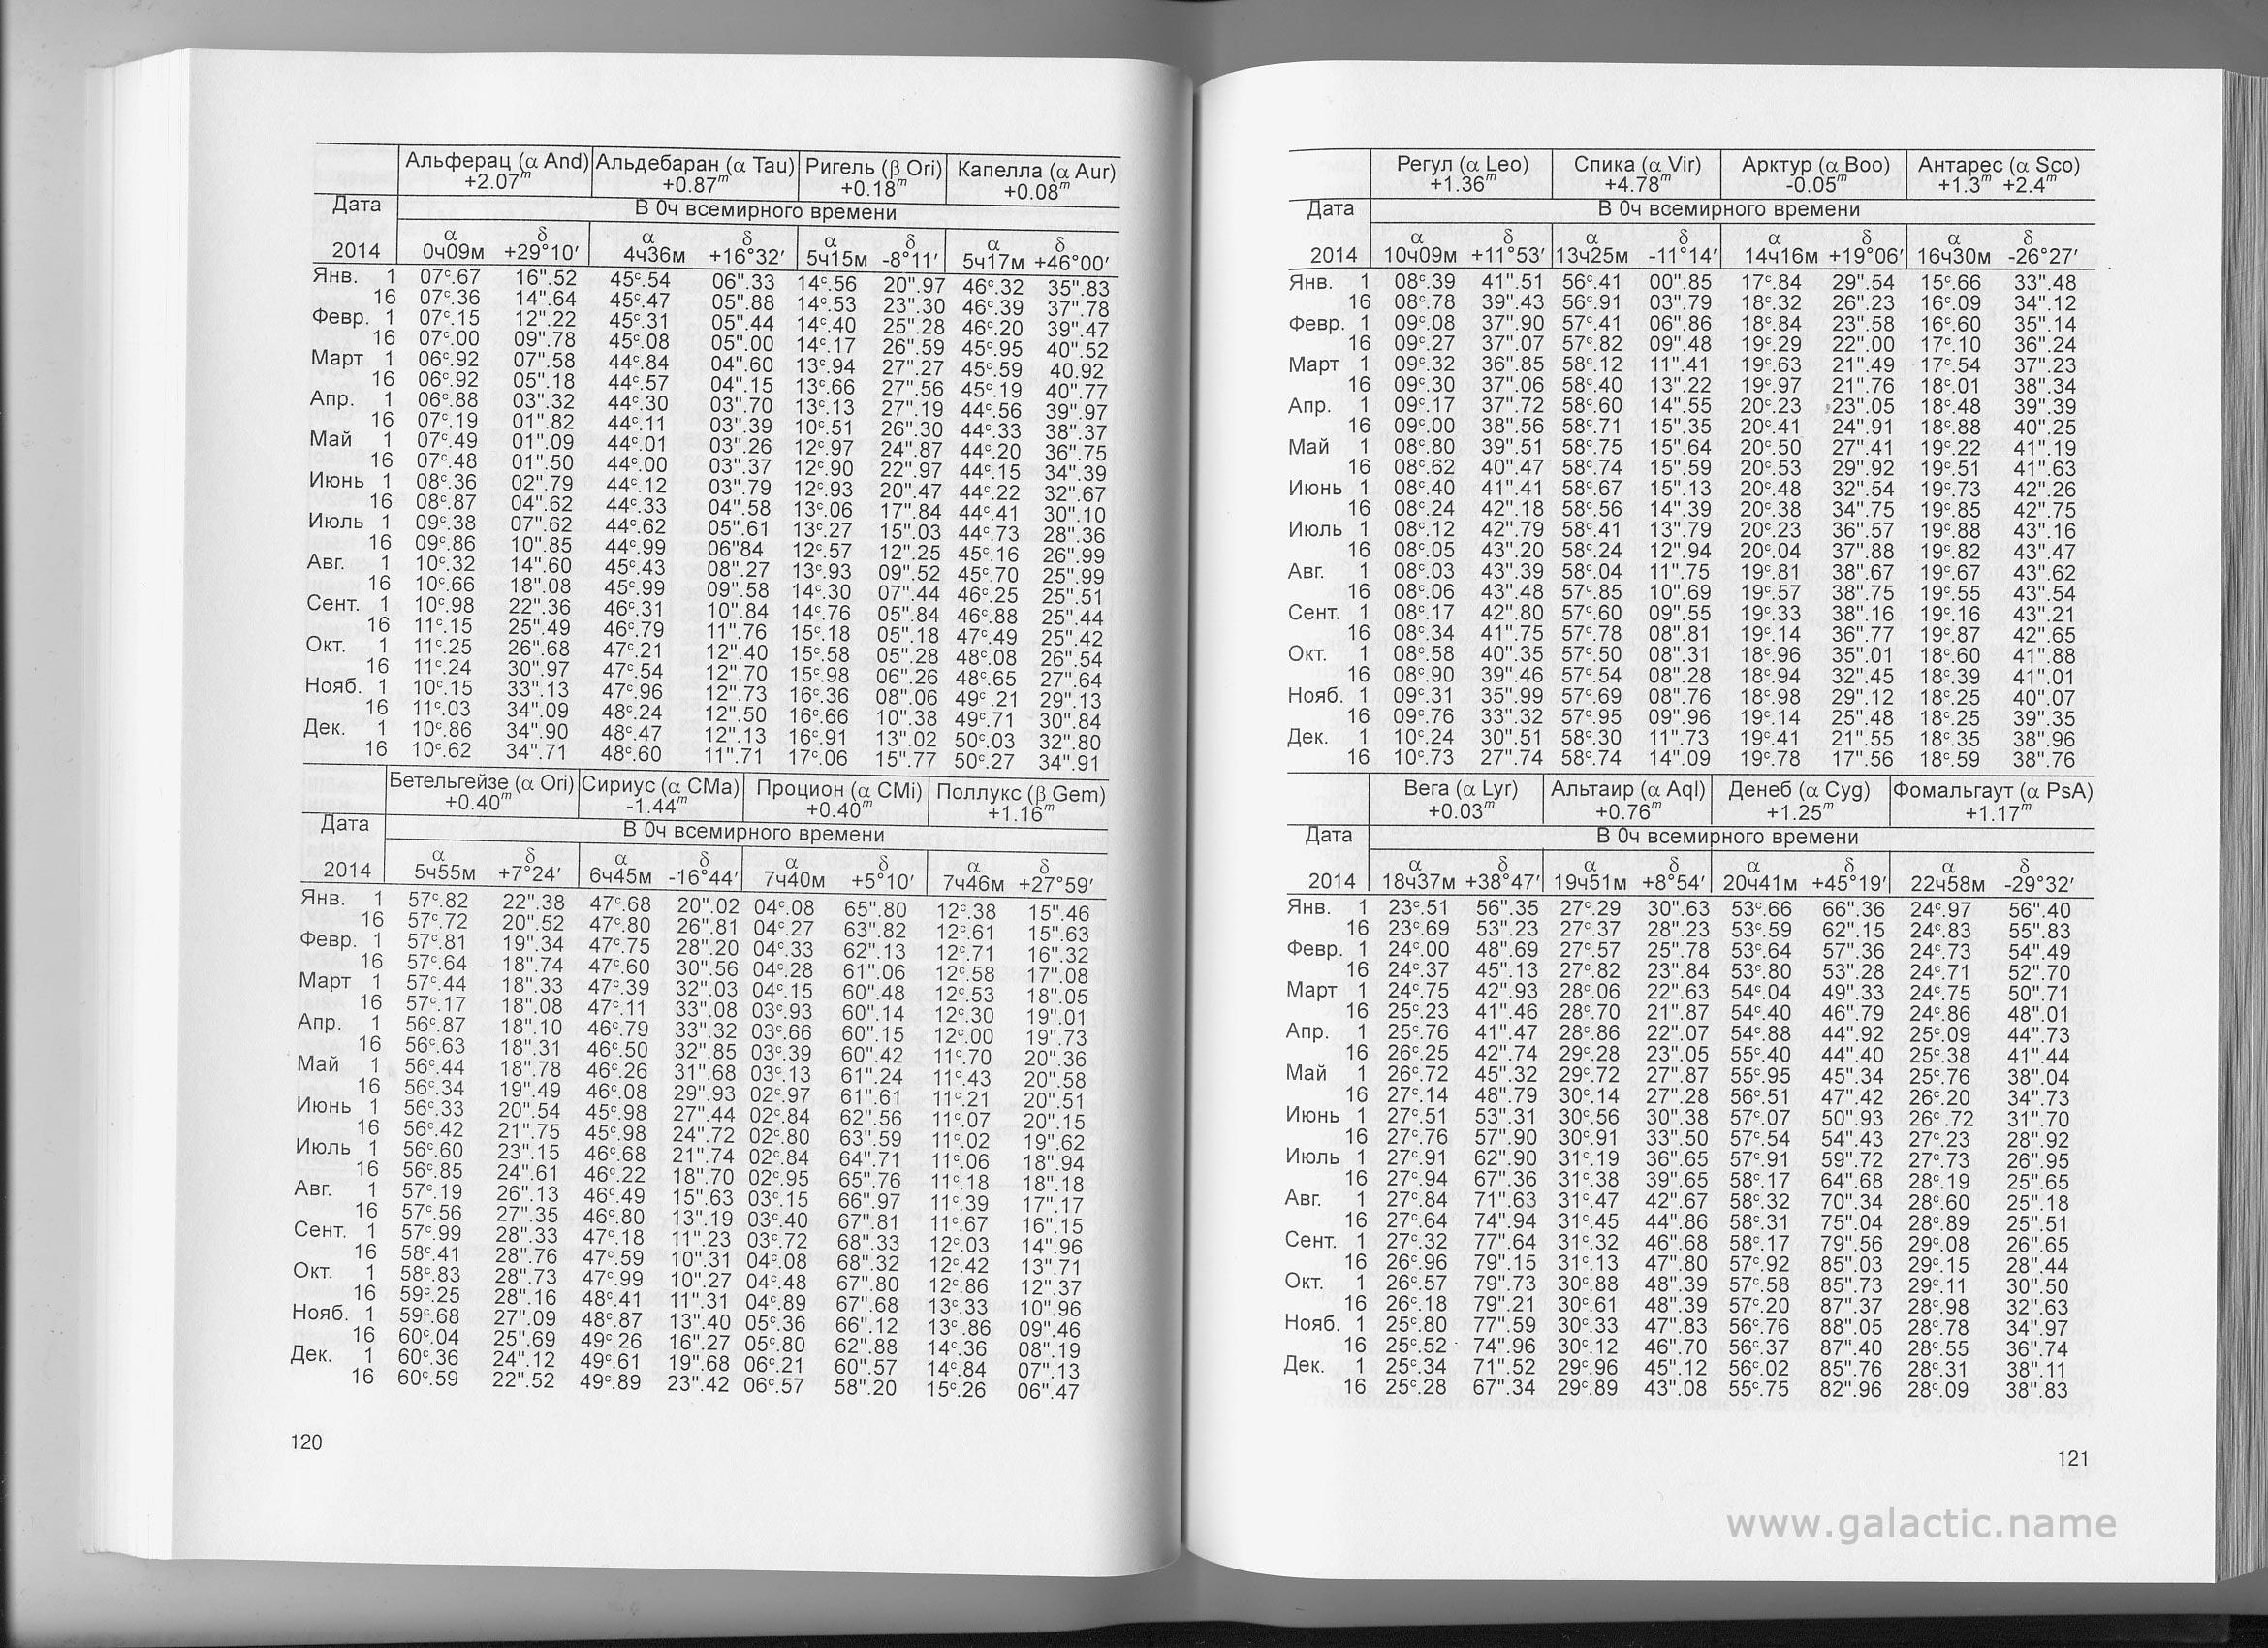 Альферац (α And) Альдебаран (α Tau) Ригель (β Ori) Капелла (α Aur)
+2.07ᵐ +0.87ᵐ +0.18ᵐ +0.08ᵐ
Дата В 0ч всемирного времени
α δ α δ α δ α δ
2014 0ч09м +29°10′ 4ч36м +16°32′ 5ч15м -8°11′ 5ч17м +46°00′
Янв. 1 07ᶜ.67 16".52 45ᶜ.54 06".33 14ᶜ.56 20".97 46ᶜ.32 35".83
16 07ᶜ.36 14".64 45ᶜ.47 05".88 14ᶜ.53 23".30 46ᶜ.39 37".78
Февр. 1 07ᶜ.15 12".22 45ᶜ.31 05".44 14ᶜ.40 25".28 46ᶜ.20 39".47
16 07ᶜ.00 09".78 45ᶜ.08 05".00 14ᶜ.17 26".59 45ᶜ.95 40".52
Март 1 06ᶜ.92 07".58 44ᶜ.84 04".60 13ᶜ.94 27".27 45ᶜ.59 40.92
16 06ᶜ.92 05".18 44ᶜ.57 04".15 13ᶜ.66 27".56 45ᶜ.19 40".77
Апр. 1 06ᶜ.88 03".32 44ᶜ.30 03".70 13ᶜ.13 27".19 44ᶜ.56 39".97
16 07ᶜ.19 01".82 44ᶜ.11 03".39 10ᶜ.51 26".30 44ᶜ.33 38".37
Май 1 07ᶜ.49 01".09 44ᶜ.01 03".26 12ᶜ.97 24".87 44ᶜ.20 36".75
16 07ᶜ.48 01".50 44ᶜ.00 03".37 12ᶜ.90 22".97 44ᶜ.15 34".39
Июнь 1 08ᶜ.36 02".79 44ᶜ.12 03".79 12ᶜ.93 20".47 44ᶜ.22 32".67
16 08ᶜ.87 04".62 44ᶜ.33 04".58 13ᶜ.06 17".84 44ᶜ.41 30".10
Июль 1 09ᶜ.38 07".62 44ᶜ.62 05".61 13ᶜ.27 15".03 44ᶜ.73 28".36
16 09ᶜ.86 10".85 44ᶜ.99 06"84 12ᶜ.57 12".25 45ᶜ.16 26".99
Авг. 1 10ᶜ.32 14".60 45ᶜ.43 08".27 13ᶜ.93 09".52 45ᶜ.70 25".99
16 10ᶜ.66 18".08 45ᶜ.99 09".58 14ᶜ.30 07".44 46ᶜ.25 25".51
Сент. 1 10ᶜ.98 22".36 46ᶜ.31 10".84 14ᶜ.76 05".84 46ᶜ.88 25".44
16 11ᶜ.15 25".49 46ᶜ.79 11".76 15ᶜ.18 05".18 47ᶜ.49 25".42
Окт. 1 11ᶜ.25 26".68 47ᶜ.21 12".40 15ᶜ.58 05".28 48ᶜ.08 26".54
16 11ᶜ.24 30".97 47ᶜ.54 12".70 15ᶜ.98 06".26 48ᶜ.65 27".64
Нояб. 1 10ᶜ.15 33".13 47ᶜ.96 12".73 16ᶜ.36 08".06 49ᶜ.21 29".13
16 11ᶜ.03 34".09 48ᶜ.24 12".50 16ᶜ.66 10".38 49ᶜ.71 30".84
Дек. 1 10ᶜ.86 34".90 48ᶜ.47 12".13 16ᶜ.91 13".02 50ᶜ.03 32".80
16 10ᶜ.62 34".71 48ᶜ.60 11".71 17ᶜ.06 15".77 50ᶜ.27 34".91
Бетельгейзе (α Ori) Сириус (α CMa) Процион (α CMi) Поллукс (β Gem)
+0.40ᵐ -1.44ᵐ +0.40ᵐ +1.16ᵐ
Дата В 0ч всемирного времени
α δ α δ α δ α δ
2014 5ч55м +7°24′ 6ч45м -16°44′ 7ч40м +5°10′ 7ч46м +27°59′
Янв. 1 57ᶜ.82 22".38 47ᶜ.68 20".02 04ᶜ.08 65".80 12ᶜ.38 15".46
16 57ᶜ.72 20".52 47ᶜ.80 26".81 04ᶜ.27 63".82 12ᶜ.61 15".63
Февр. 1 57ᶜ.81 19".34 47ᶜ.75 28".20 04ᶜ.33 62".13 12ᶜ.71 16".32
16 57ᶜ.64 18".74 47ᶜ.60 30".56 04ᶜ.28 61".06 12ᶜ.58 17".08
Март 1 57ᶜ.44 18".33 47ᶜ.39 32".03 04ᶜ.15 60".48 12ᶜ.53 18".05
16 57ᶜ.17 18".08 47ᶜ.11 33".08 03ᶜ.93 60".14 12ᶜ.30 19".01
Апр. 1 56ᶜ.87 18".10 46ᶜ.79 33".32 03ᶜ.66 60".15 12ᶜ.00 19".73
16 56ᶜ.63 18".31 46ᶜ.50 32".85 03ᶜ.39 60".42 11ᶜ.70 20".36
Май 1 56ᶜ.44 18".78 46ᶜ.26 31".68 03ᶜ.13 61".24 11ᶜ.43 20".58
16 56ᶜ.34 19".49 46ᶜ.08 29".93 02ᶜ.97 61".61 11ᶜ.21 20".51
Июнь 1 56ᶜ.33 20".54 45ᶜ.98 27".44 02ᶜ.84 62".56 11ᶜ.07 20".15
16 56ᶜ.42 21".75 45ᶜ.98 24".72 02ᶜ.80 63".59 11ᶜ.02 19".62
Июль 1 56ᶜ.60 23".15 46ᶜ.68 21".74 02ᶜ.84 64".71 11ᶜ.06 18".94
16 56ᶜ.85 24".61 46ᶜ.22 18".70 02ᶜ.95 65".76 11ᶜ.18 18".18
Авг. 1 57ᶜ.19 26".13 46ᶜ.49 15".63 03ᶜ.15 66".97 11ᶜ.39 17".17
16 57ᶜ.56 27".35 46ᶜ.80 13".19 03ᶜ.40 67".81 11ᶜ.67 16".15
Сент. 1 57ᶜ.99 28".33 47ᶜ.18 11".23 03ᶜ.72 68".33 12ᶜ.03 14".96
16 58ᶜ.41 28".76 47ᶜ.59 10".31 04ᶜ.08 68".32 12ᶜ.42 13".71
Окт. 1 58ᶜ.83 28".73 47ᶜ.99 10".27 04ᶜ.48 67".80 12ᶜ.86 12".37
16 59ᶜ.25 28".16 48ᶜ.41 11".31 04ᶜ.89 67".68 13ᶜ.33 10".96
Нояб. 1 59ᶜ.68 27".09 48ᶜ.87 13".40 05ᶜ.36 66".12 13ᶜ.86 09".46
16 60ᶜ.04 25".69 49ᶜ.26 16".27 05ᶜ.80 62".88 14ᶜ.36 08".19
Дек. 1 60ᶜ.36 24".12 49ᶜ.61 19".68 06ᶜ.21 60".57 14ᶜ.84 07".13
16 60ᶜ.59 22".52 49ᶜ.89 23".42 06ᶜ.57 58".20 15ᶜ.26 06".47
120
Регул (α Leo) Спика (α Vir) Арктур (α Boo) Антарес (α Sco)
+1.36ᵐ +4.78ᵐ -0.05ᵐ +1.3ᵐ +2.4ᵐ
Дата В 0ч всемирного времени
α δ α δ α δ α δ
2014 10ч09м +11°53′ 13ч25м -11°14′ 14ч16м +19°06′ 16ч30м -26°27′
Янв. 1 08ᶜ.39 41".51 56ᶜ.41 00".85 17ᶜ.84 29".54 15ᶜ.66 33".48
16 08ᶜ.78 39".43 56ᶜ.91 03".79 18ᶜ.32 26".23 16ᶜ.09 34".12
Февр. 1 09ᶜ.08 37".90 57ᶜ.41 06".86 18ᶜ.84 23".58 16ᶜ.60 35".14
16 09ᶜ.27 37".07 57ᶜ.82 09".48 19ᶜ.29 22".00 17ᶜ.10 36".24
Март 1 09ᶜ.32 36".85 58ᶜ.12 11".41 19ᶜ.63 21".49 17ᶜ.54 37".23
16 09ᶜ.30 37".06 58ᶜ.40 13".22 19ᶜ.97 21".76 18ᶜ.01 38".34
Апр. 1 09ᶜ.17 37".72 58ᶜ.60 14".55 20ᶜ.23 23".05 18ᶜ.48 39".39
16 09ᶜ.00 38".56 58ᶜ.71 15".35 20ᶜ.41 24".91 18ᶜ.88 40".25
Май 1 08ᶜ.80 39".51 58ᶜ.75 15".64 20ᶜ.50 27".41 19ᶜ.22 41".19
16 08ᶜ.62 40".47 58ᶜ.74 15".59 20ᶜ.53 29".92 19ᶜ.51 41".63
Июнь 1 08ᶜ.40 41".41 58ᶜ.67 15".13 20ᶜ.48 32".54 19ᶜ.73 42".26
16 08ᶜ.24 42".18 58ᶜ.56 14".39 20ᶜ.38 34".75 19ᶜ.85 42".75
Июль 1 08ᶜ.12 42".79 58ᶜ.41 13".79 20ᶜ.23 36".57 19ᶜ.88 43".16
16 08ᶜ.05 43".20 58ᶜ.24 12".94 20ᶜ.04 37".88 19ᶜ.82 43".47
Авг. 1 08ᶜ.03 43".39 58ᶜ.04 11".75 19ᶜ.81 38".67 19ᶜ.67 43".62
16 08ᶜ.06 43".48 57ᶜ.85 10".69 19ᶜ.57 38".75 19ᶜ.55 43".54
Сент. 1 08ᶜ.17 42".80 57ᶜ.60 09".55 19ᶜ.33 38".16 19ᶜ.16 43".21
16 08ᶜ.34 41".75 57ᶜ.78 08".81 19ᶜ.14 36".77 19ᶜ.87 42".65
Окт. 1 08ᶜ.58 40".35 57ᶜ.50 08".31 18ᶜ.96 35".01 18ᶜ.60 41".88
16 08ᶜ.90 39".46 57ᶜ.54 08".28 18ᶜ.94 32".45 18ᶜ.39 41".01
Нояб. 1 09ᶜ.31 35".99 57ᶜ.69 08".76 18ᶜ.98 29".12 18ᶜ.25 40".07
16 09ᶜ.76 33".32 57ᶜ.95 09".96 19ᶜ.14 25".48 18ᶜ.25 39".35
Дек. 1 10ᶜ.24 30".51 58ᶜ.30 11".73 19ᶜ.41 21".55 18ᶜ.35 38".96
16 10ᶜ.73 27".74 58ᶜ.74 14".09 19ᶜ.78 17".56 18ᶜ.59 38".76
Вега (α Lyr) Альтаир (α Aql) Денеб (α Cyg) Фомальгаут (α PsA)
+0.03ᵐ +0.76ᵐ +1.25ᵐ +1.17ᵐ
Дата В 0ч всемирного времени
α δ α δ α δ α δ
2014 18ч37м +38°47′ 19ч51м +8°54′ 20ч41м +45°19′ 22ч58м -29°32′
Янв. 1 23ᶜ.51 56".35 27ᶜ.29 30".63 53ᶜ.66 66".36 24ᶜ.97 56".40
16 23ᶜ.69 53".23 27ᶜ.37 28".23 53ᶜ.59 62".15 24ᶜ.83 55".83
Февр. 1 24ᶜ.00 48".69 27ᶜ.57 25".78 53ᶜ.64 57".36 24ᶜ.73 54".49
16 24ᶜ.37 45".13 27ᶜ.82 23".84 53ᶜ.80 53".28 24ᶜ.71 52".70
Март 1 24ᶜ.75 42".93 28ᶜ.06 22".63 54ᶜ.04 49".33 24ᶜ.75 50".71
16 25ᶜ.23 41".46 28ᶜ.70 21".87 54ᶜ.40 46".79 24ᶜ.86 48".01
Апр. 1 25ᶜ.76 41".47 28ᶜ.86 22".07 54ᶜ.88 44".92 25ᶜ.09 44".73
16 26ᶜ.25 42".74 29ᶜ.28 23".05 55ᶜ.40 44".40 25ᶜ.38 41".44
Май 1 26ᶜ.72 45".32 29ᶜ.72 27".87 55ᶜ.95 45".34 25ᶜ.76 38".04
16 27ᶜ.14 48".79 30ᶜ.14 27".28 56ᶜ.51 47".42 26ᶜ.20 34".73
Июнь 1 27ᶜ.51 53".31 30ᶜ.56 30".38 57ᶜ.07 50".93 26ᶜ.72 31".70
16 27ᶜ.76 57".90 30ᶜ.91 33".50 57ᶜ.54 54".43 27ᶜ.23 28".92
Июль 1 27ᶜ.91 62".90 31ᶜ.19 36".65 57ᶜ.91 59".72 27ᶜ.73 26".95
16 27ᶜ.94 67".36 31ᶜ.38 39".65 58ᶜ.17 64".68 28ᶜ.19 25".65
Авг. 1 27ᶜ.84 71".63 31ᶜ.47 42".67 58ᶜ.32 70".34 28ᶜ.60 25".18
16 27ᶜ.64 74".94 31ᶜ.45 44".86 58ᶜ.31 75".04 28ᶜ.89 25".51
Сент. 1 27ᶜ.32 77".64 31ᶜ.32 46".68 58ᶜ.17 79".56 29ᶜ.08 26".65
16 26ᶜ.96 79".15 31ᶜ.13 47".80 57ᶜ.92 85".03 29ᶜ.15 28".44
Окт. 1 26ᶜ.57 79".73 30ᶜ.88 48".39 57ᶜ.58 85".73 29ᶜ.11 30".50
16 26ᶜ.18 79".21 30ᶜ.61 48".39 57ᶜ.20 87".37 28ᶜ.98 32".63
Нояб. 1 25ᶜ.80 77".59 30ᶜ.33 47".83 56ᶜ.76 88".05 28ᶜ.78 34".97
16 25ᶜ.52 74".96 30ᶜ.12 46".70 56ᶜ.37 87".40 28ᶜ.55 36".74
Дек. 1 25ᶜ.34 71".52 29ᶜ.96 45".12 56ᶜ.02 85".76 28ᶜ.31 38".11
16 25ᶜ.28 67".34 29ᶜ.89 43".08 55ᶜ.75 82".96 28ᶜ.09 38".83
121
www.galactic.name